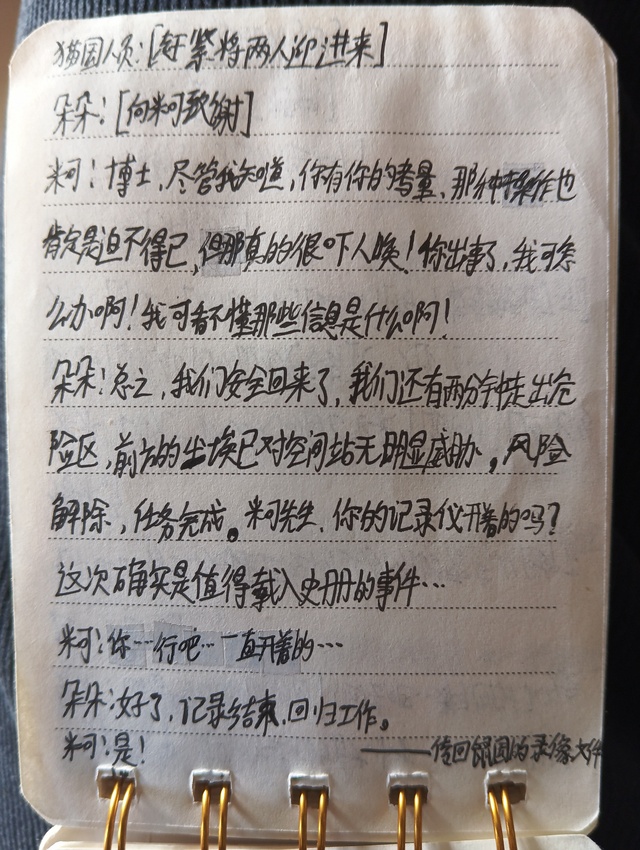 猫国人员：[赶紧将两人迎进来]
朵朵：[向米可致谢]
米可：博士，尽管我知道，你有你的考量、那种操作也
肯定是迫不得已，但那真的很吓人唉！你出事了，我可怎
么办啊！我可看不懂那些信息是什么啊！
朵朵：总之，我们安全回来了，我们还有两分钟走出危
险区，前方的尘埃已对空间站无明显威胁，风险
解除，任务完成。米可先生，你的记录仪开着的吗？
这次确实是值得载入史册的事件…
米可：你…行吧…一直开着的…
朵朵：好了，记录结束，回归工作。
米可：是！
——传回鼠国的录像文件